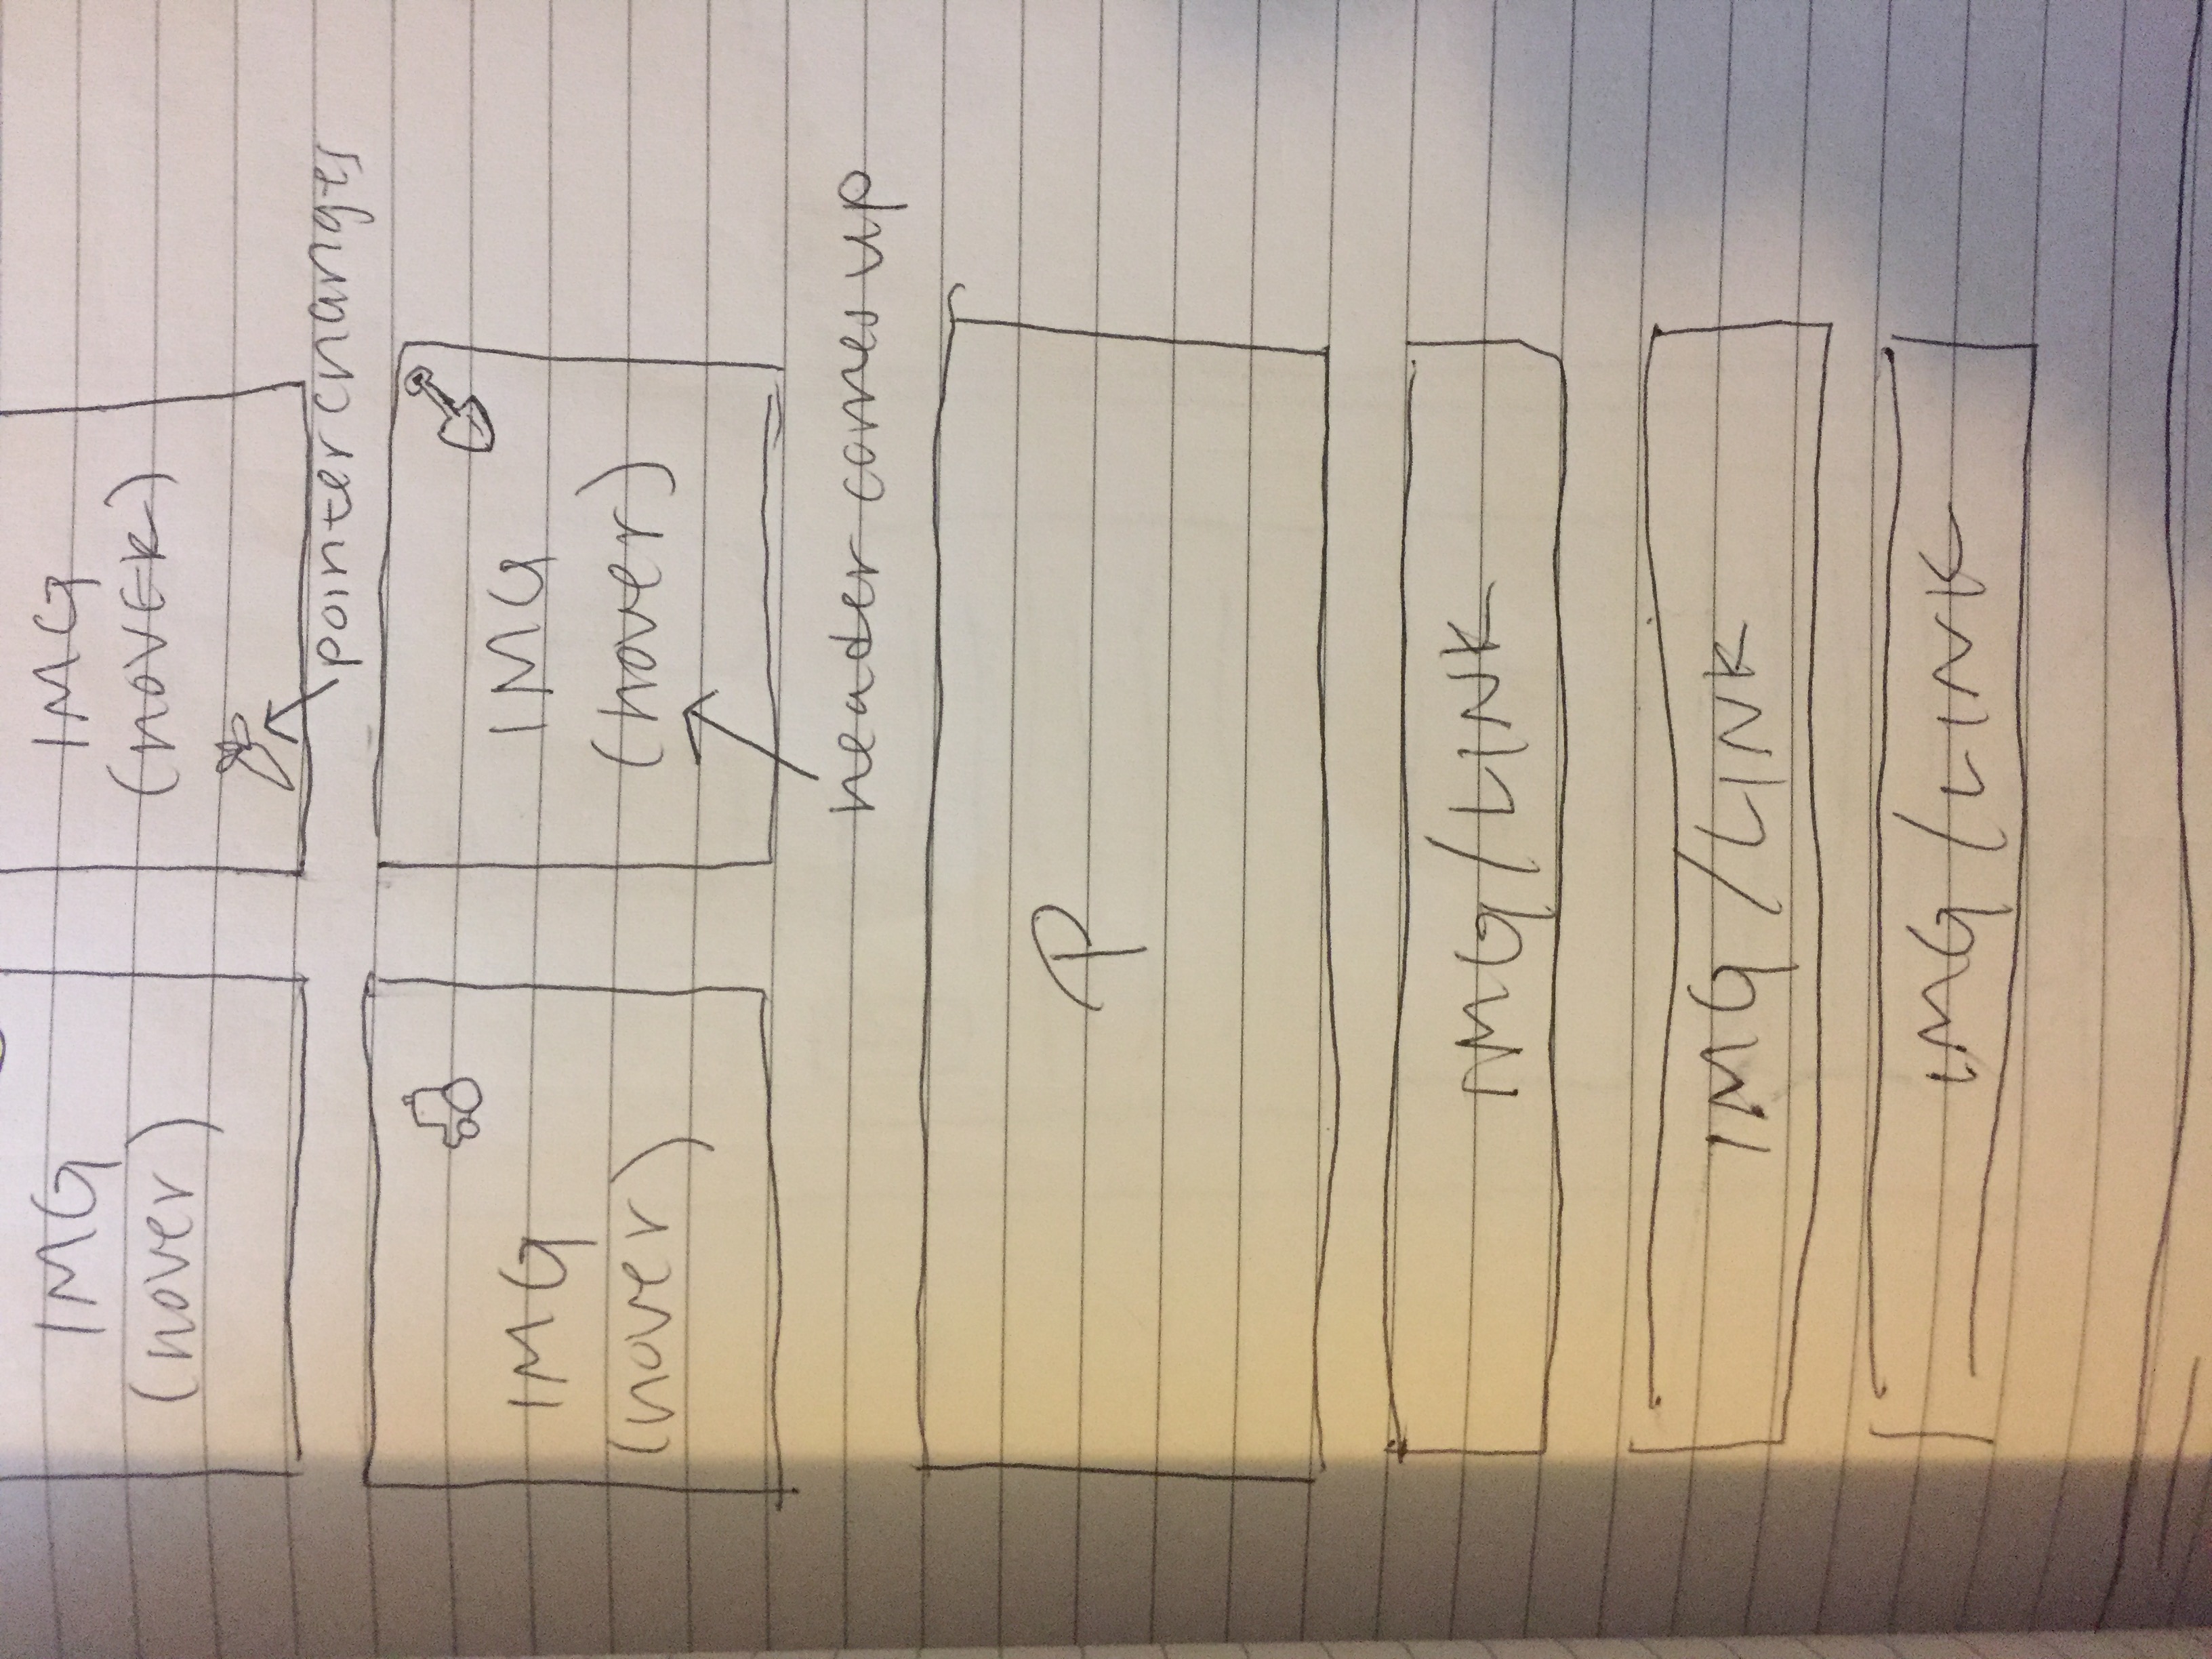 IMG
(hover)
IMG
(hovER)
pointer changes
IMG
(hover)
IMG
(hover)
header comes up
P
IMG/LINK
IMG/LINK
IMG/LINK